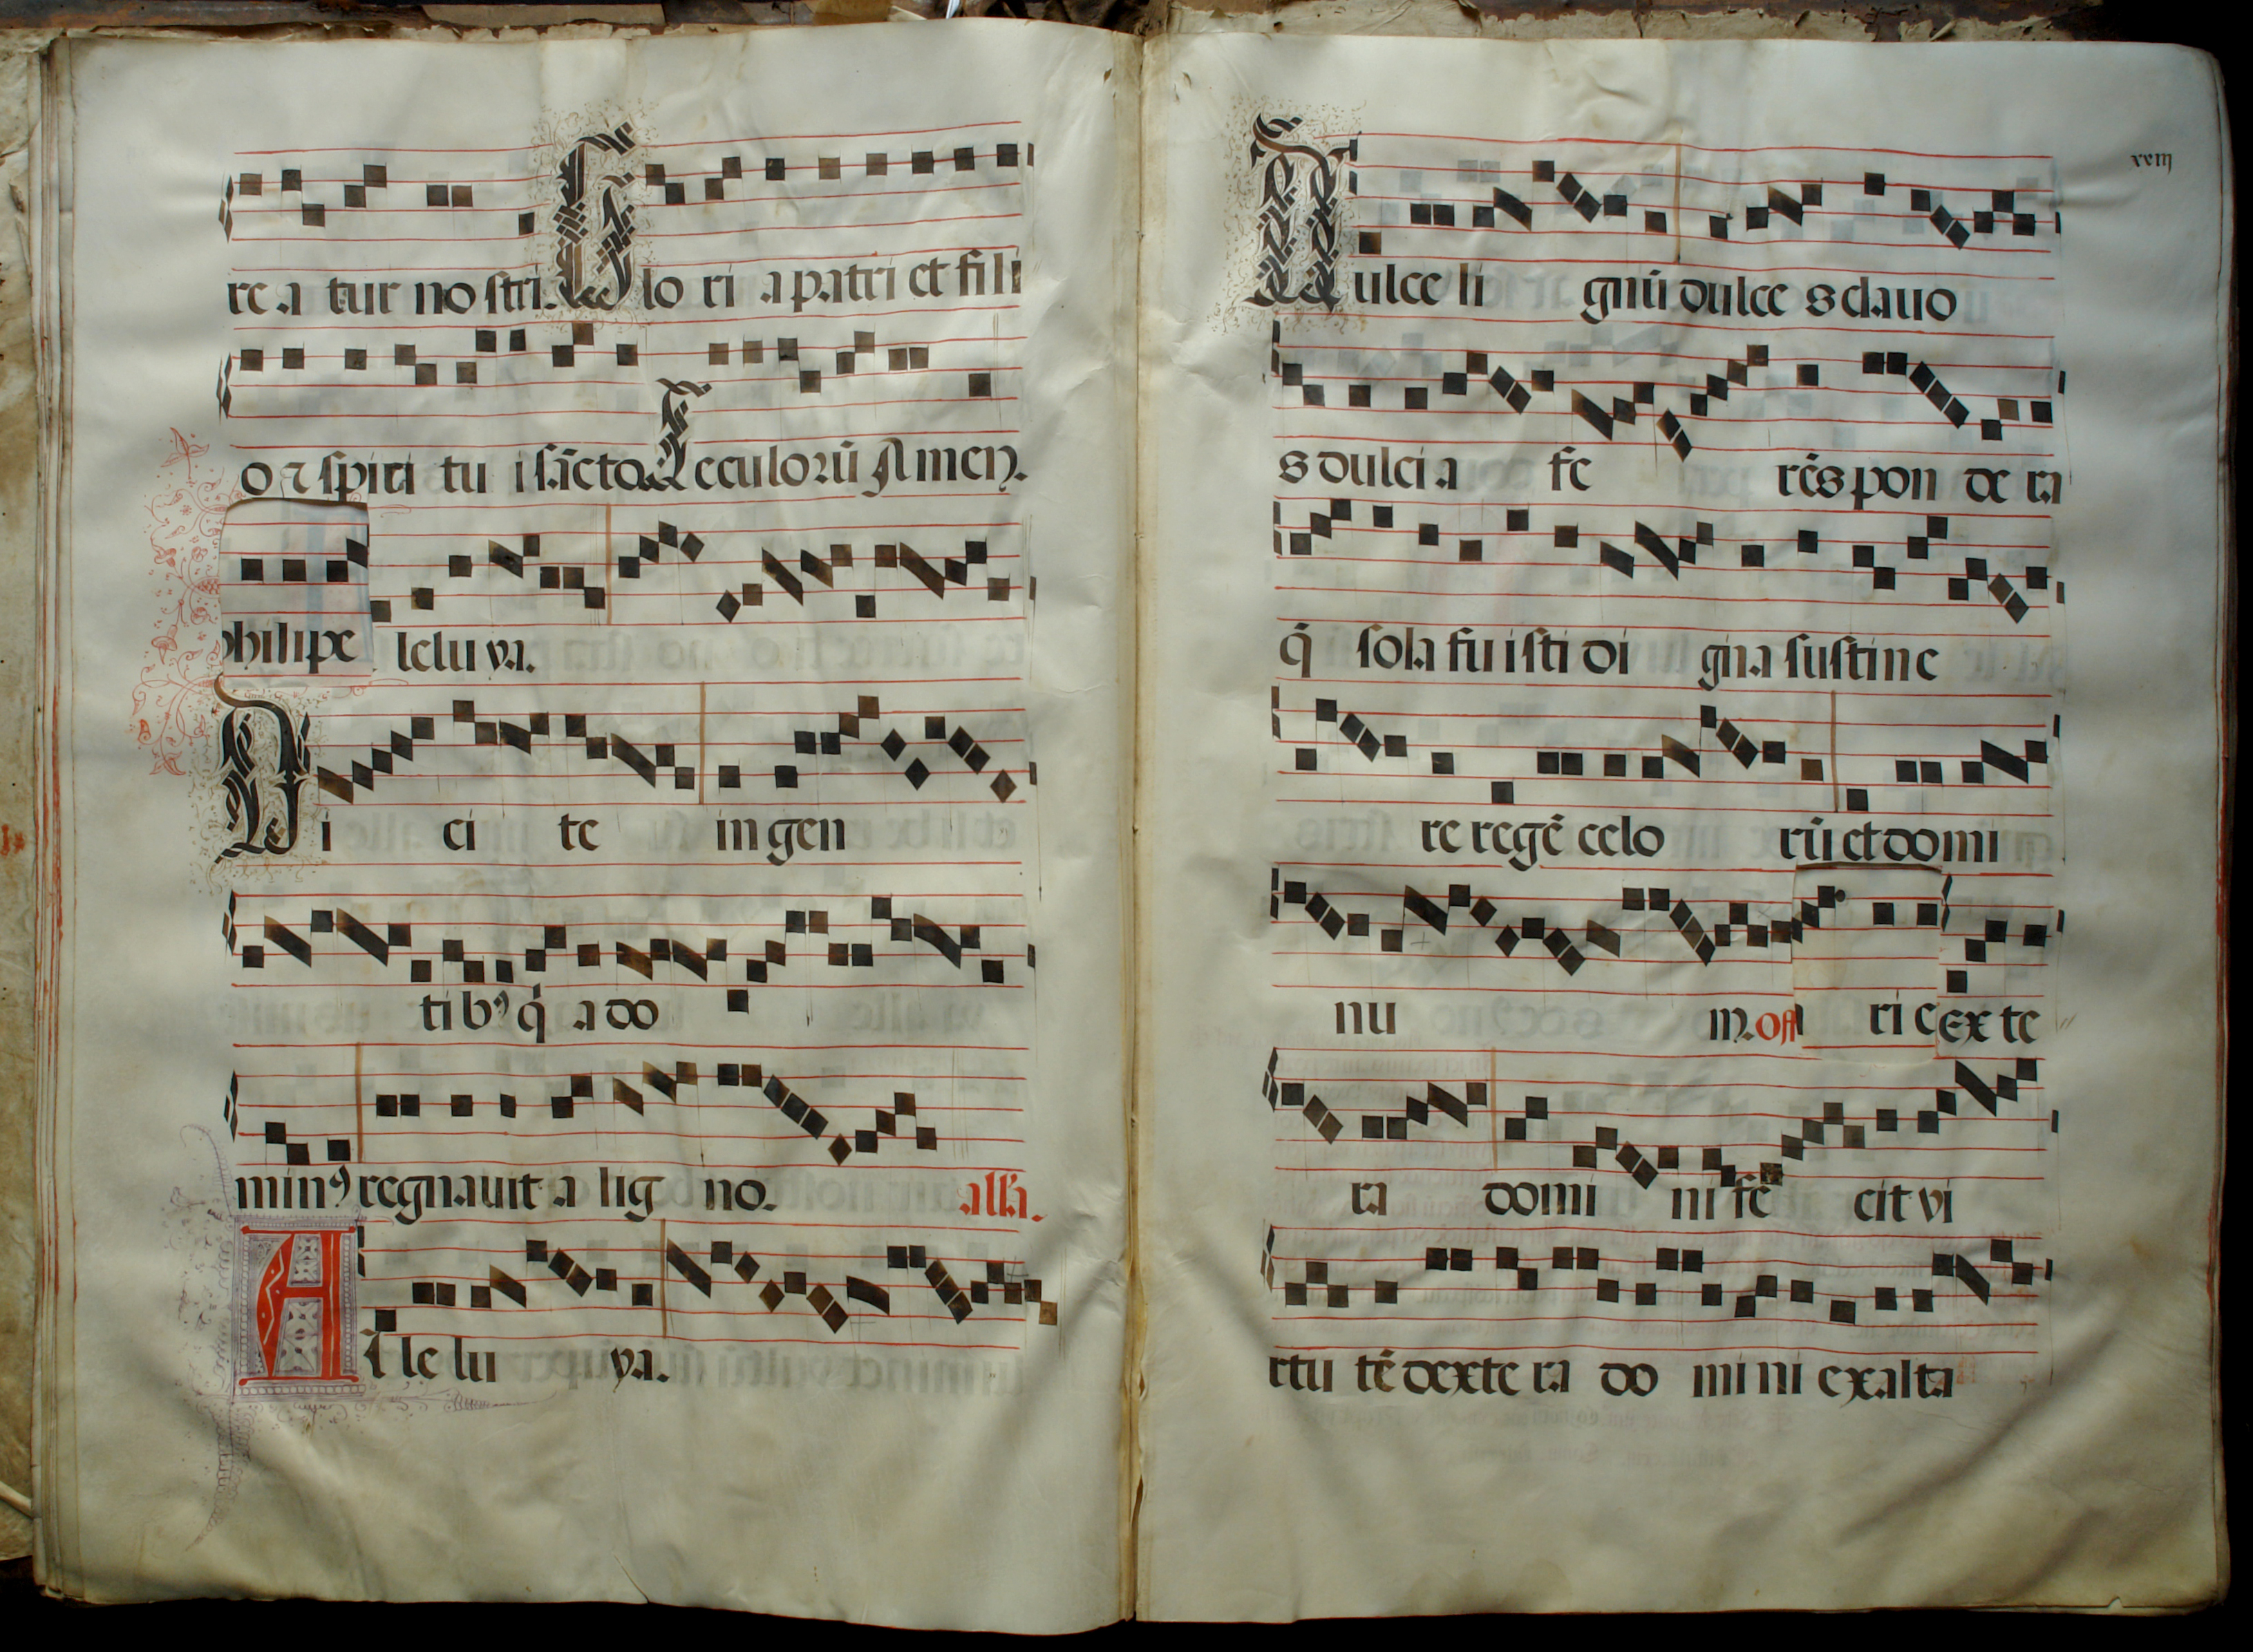 re a tur no stri. Glo ri a patri et fili
o ⁊ spiri tu i sācto. Seculoꝛū Amen.
philipe lelu ya.
Di ci te in gen
tibꝰ q̄ a do
minꝰ regnauit a lig no. alła.
Al le lu ya.
xviij
Dulce li gnū dulce s clauo
s dulci a fe rēs pon de ra
q̄ sola fuisti di gna sustine
re regē celo rū et domi
nu m. off ri e ex te
ra domi ni fē cit vi
rtu tē dexte ra do mi ni exalta